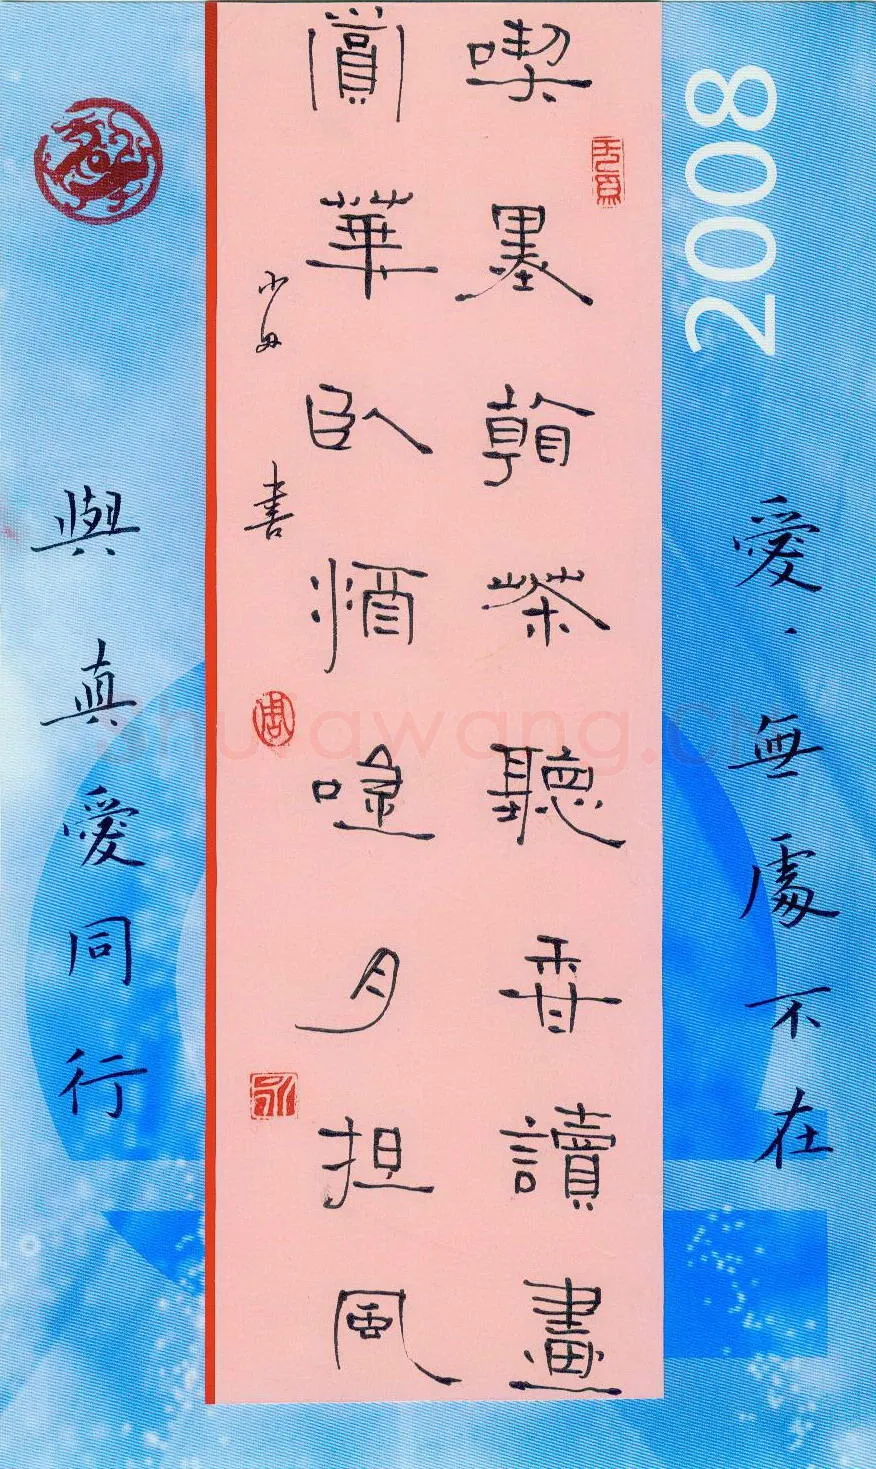 2008
愛·無處不在
喫墨茶聽香讀畫
賞華臥酒唫月担風
書
周
與真愛同行
shufawang.cn